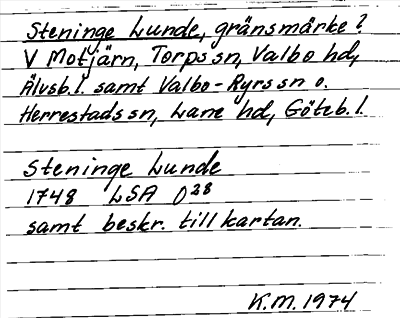 Steninge Lunde, gränsmärke?
V Motjärn, Torps sn, Valbo hd,
Älvsb. l. samt Valbo-Ryrs sn o.
Herrestads sn, Lane hd, Göteb. l.
Steninge Lunde
1748 LSA O28
samt beskr. till kartan.
K.M. 1974